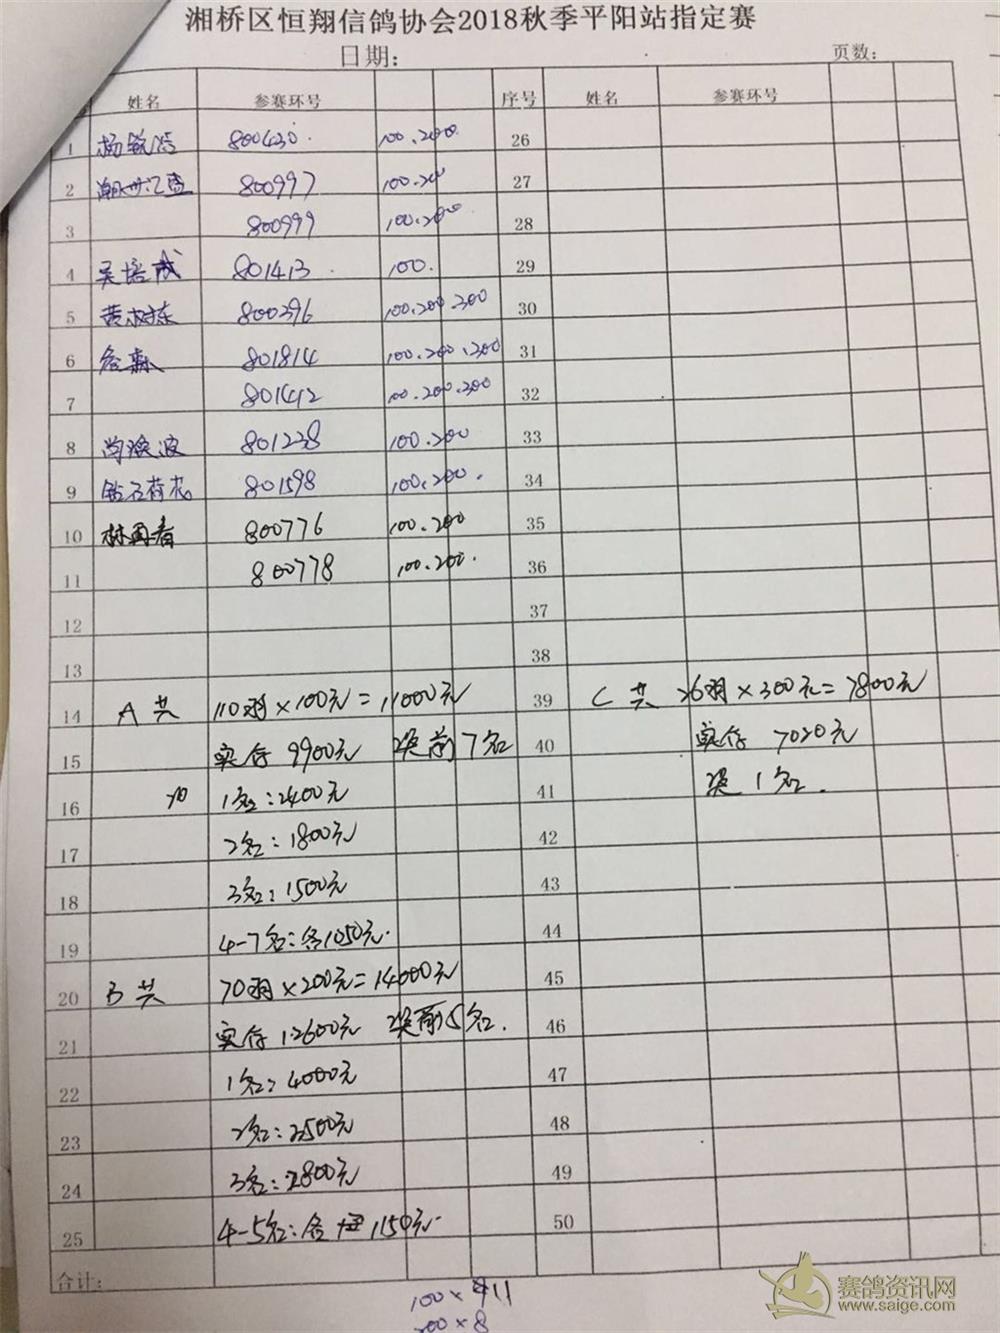 湘桥区恒翔信鸽协会2018秋季平阳站指定赛
日期: 页数:
姓名 参赛环号 序号 姓名 参赛环号
1 800430 100.200 26
2 800997 100.200 27
3 800999 100.200 28
4 吴培成 801413 100. 29
5 黄树东 800396 100.200 300 30
6 詹森 801814 100.200.300 31
7 801412 100.200.300 32
8 801238 100.200 33
9 钻石荷花 801598 100.200. 34
10 800776 100.200 35
11 800778 100.200. 36
12 37
13 38
14 A 共 110羽×100元=11000元 39 C 共 26羽×300元=7800元
15 实存 9900元 奖前7名 40 实存 7020元
16 1名:2400元 41 奖1名.
17 2名:1800元 42
18 3名:1500元 43
19 4-7名:各1050元. 44
20 B 共 70羽×200元=14000元 45
21 实存 12600元 奖前5名. 46
22 1名:4000元 47
23 2名:3500元 48
24 3名:2800元 49
25 4-5名:各 1150元 50
合计:
100×11
200×8
赛鸽资讯网
www.saige.com